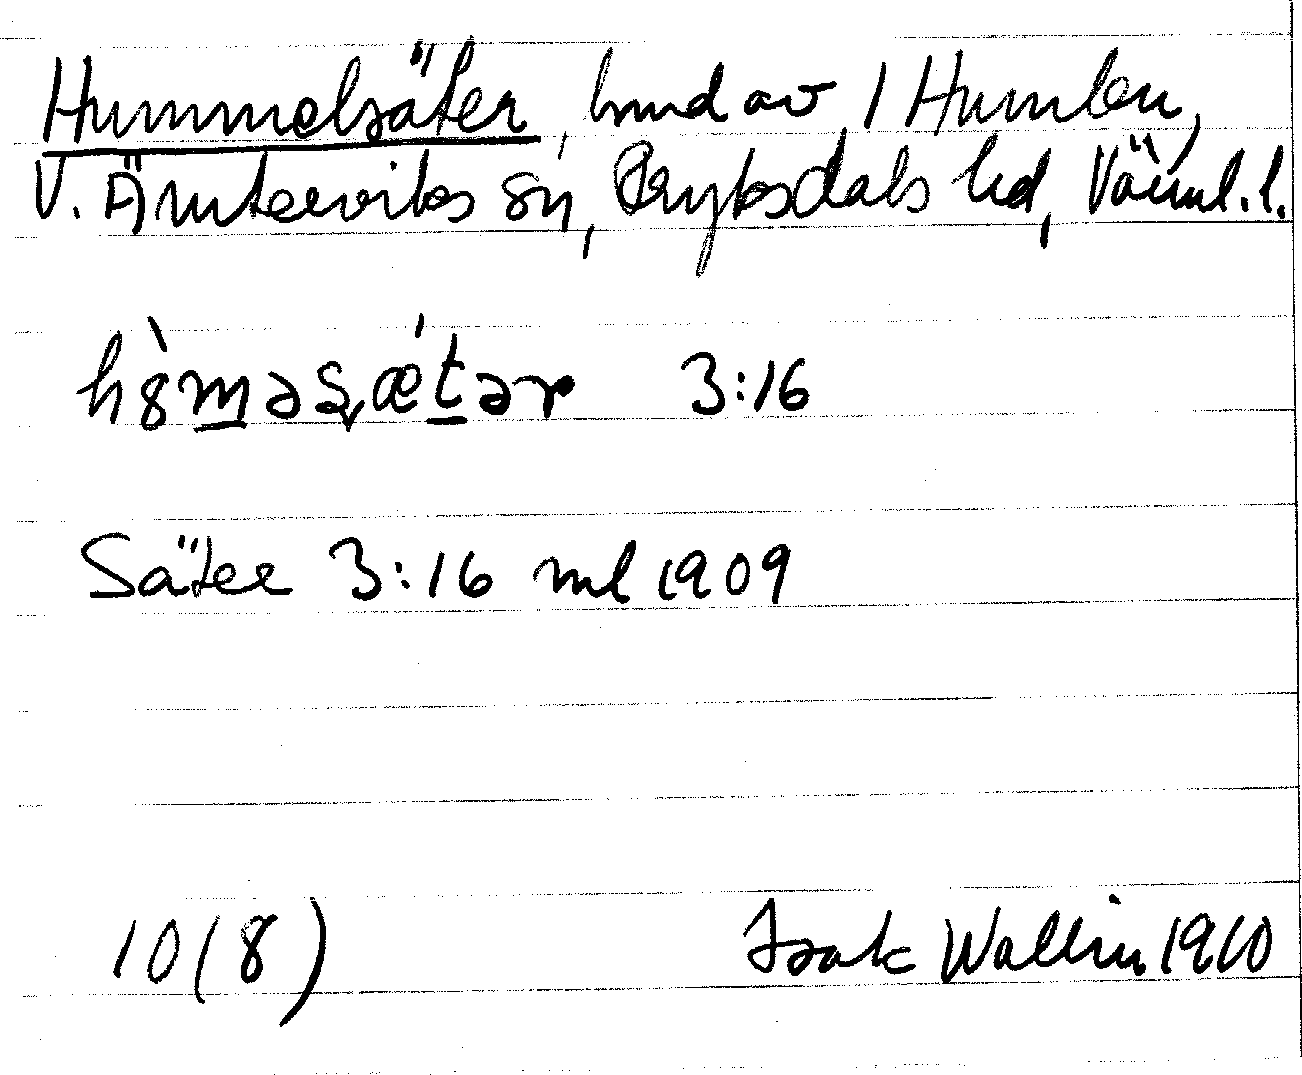 Hummelsäter, hmd av 1 Humlen,
V. Ämterviks sn, Fryksdals hd, Värml. l.
hə̀məsǽtər 3:16
Säter 3:16 ml 1909
10 (8) Isak Wallin 1910